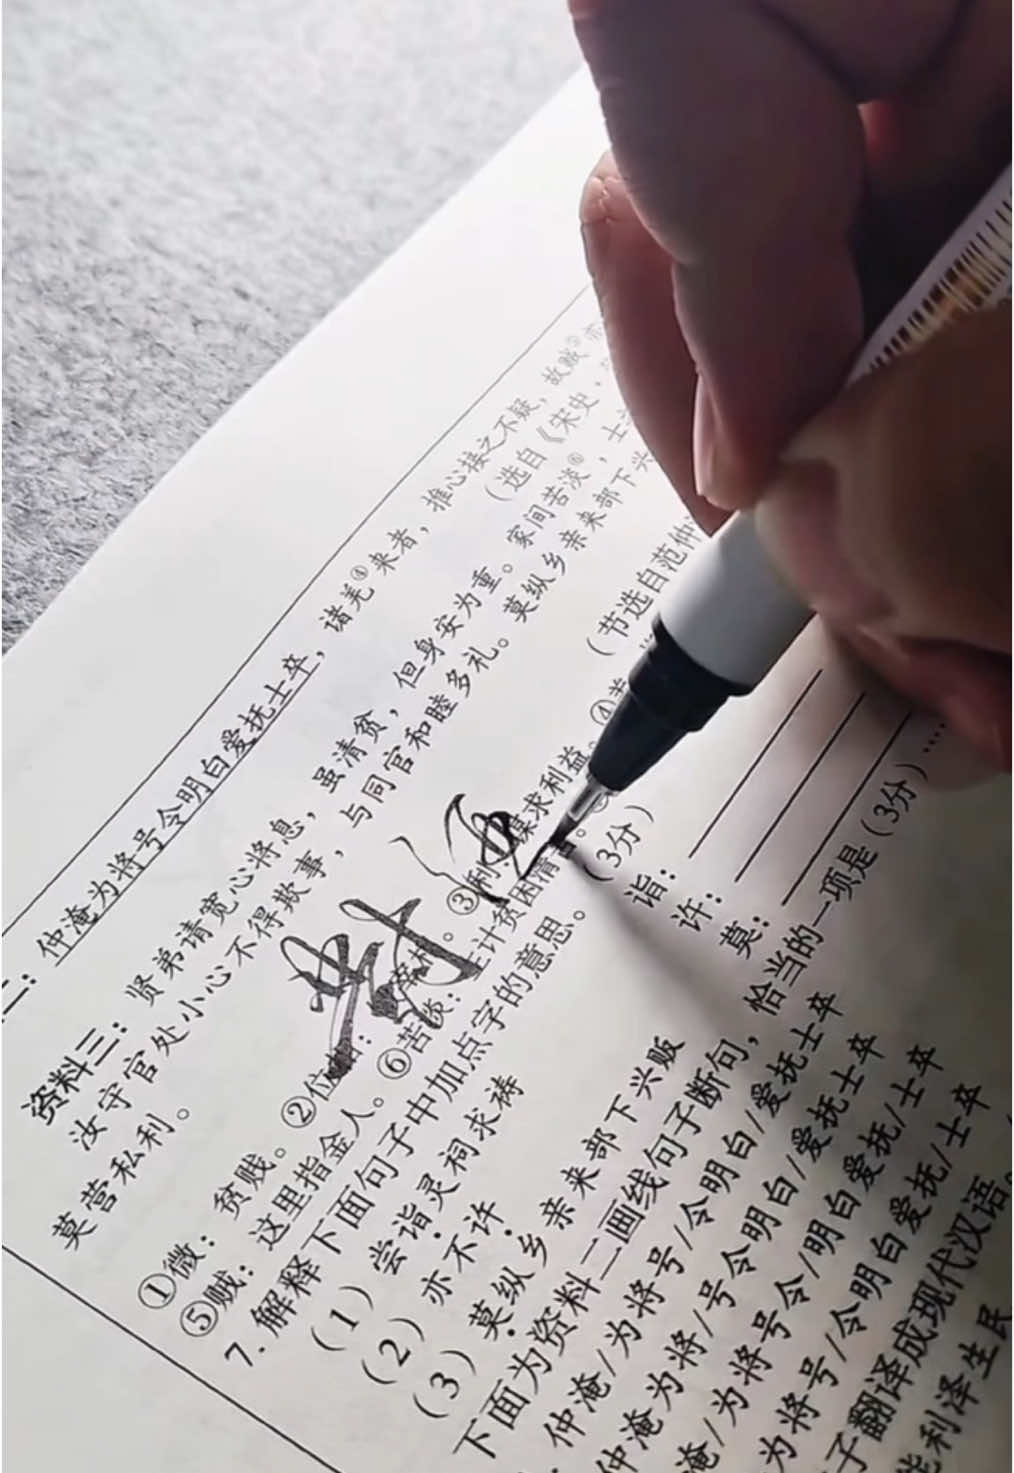 二：仲淹为将号令明白爱抚士卒，诸羌④来者，推心接之不疑，故贼⑤亦
（选自《宋史·
资料三：贤弟请宽心将息，虽清贫，但身安为重。家间苦淡⑥，士
汝守官处小心不得欺事，与同官和睦多礼。莫纵乡亲来部下兴
莫营私利。
（节选自范仲
①微：贫贱。②位 ③利 谋求利益。④羌
⑤贼：这里指金人。⑥苦淡：生计贫困清
7. 解释下面句子中加点字的意思。（3分）
（1）尝诣灵祠求祷
诣：
（2）亦不许
许：
（3）莫纵乡亲来部下兴贩
莫：
下面为资料二画线句子断句，恰当的一项是（3分）
仲淹/为将号/令明白/爱抚士卒
仲淹为将/号令明白/爱抚士卒
淹/为将号令/明白爱抚/士卒
为将号/令明白爱抚/士卒
子翻译成现代汉语。
能利泽生民